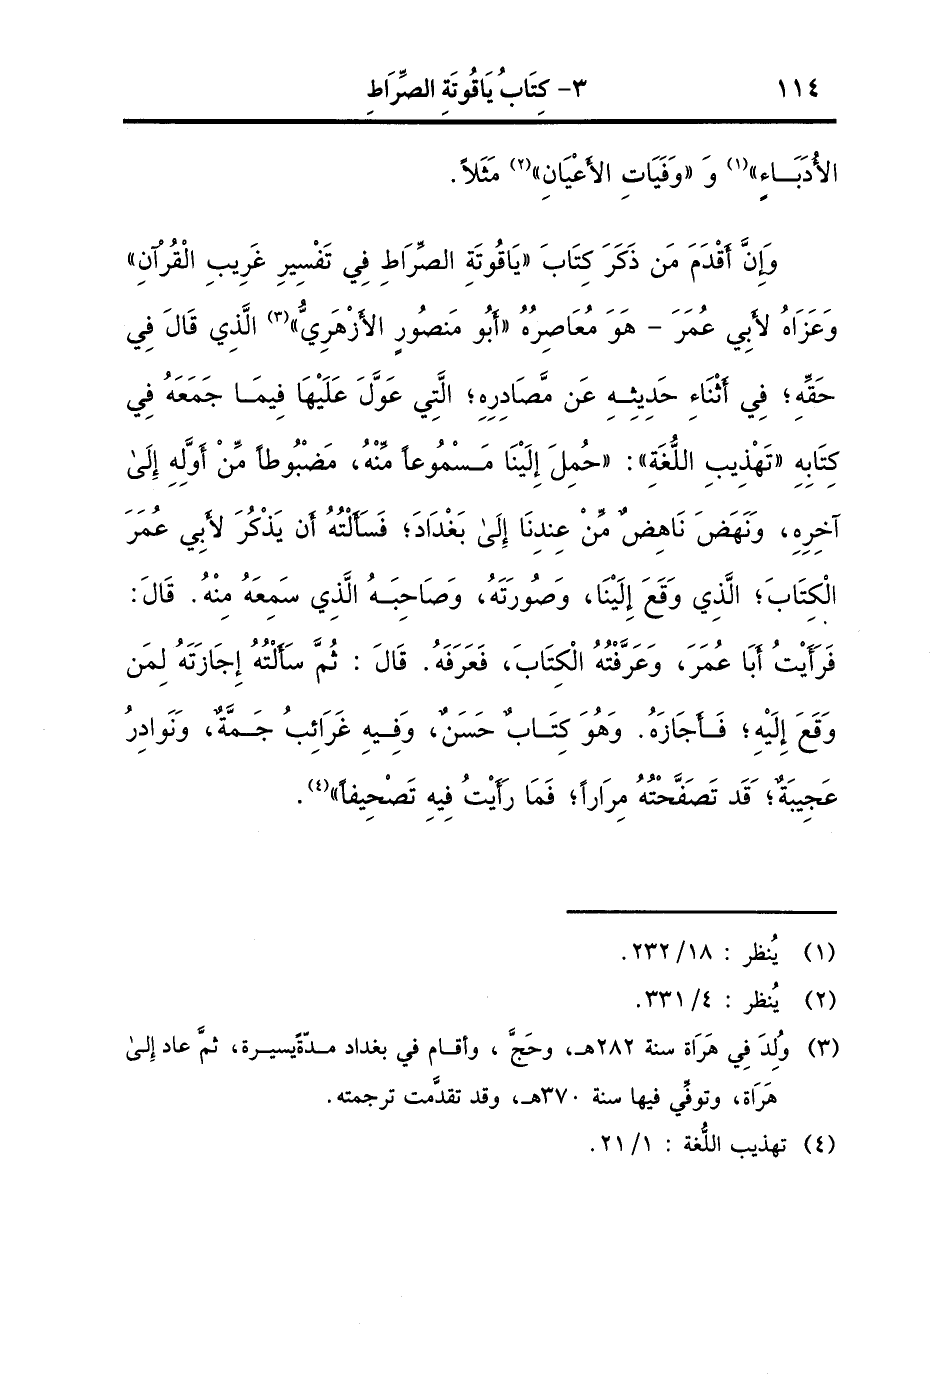 ١١٤ ٣- كِتَابُ يَاقُوتَةِ الصِّرَاطِ
الأُدَبَاءِ»(١) وَ «وَفَيَاتِ الأَعْيَانِ»(٢) مَثَلاً.
وَإِنَّ أَقْدَمَ مَن ذَكَرَ كِتَابَ «يَاقُوتَةِ الصِّرَاطِ فِي تَفْسِيرِ غَرِيبِ الْقُرْآنِ»
وَعَزَاهُ لأَبِي عُمَرَ – هُوَ مُعَاصِرُهُ «أَبُو مَنصُورٍ الأَزْهَرِيُّ»(٣) الَّذِي قَالَ فِي
حَقِّهِ؛ فِي أَثْنَاءِ حَدِيثِهِ عَن مَّصَادِرِهِ؛ الَّتِي عَوَّلَ عَلَيْهَا فِيمَا جَمَعَهُ فِي
كِتَابِهِ «تَهْذِيبِ اللُّغَةِ»: «حُمِلَ إِلَيْنَا مَسْمُوعاً مِّنْهُ، مَضْبُوطاً مِّنْ أَوَّلِهِ إِلَىٰ
آخِرِهِ، وَنَهَضَ نَاهِضٌ مِّنْ عِندِنَا إِلَىٰ بَغْدَادَ؛ فَسَأَلْتُهُ أَن يَذْكُرَ لأَبِي عُمَرَ
الْكِتَابَ؛ الَّذِي وَقَعَ إِلَيْنَا، وَصُورَتَهُ، وَصَاحِبَهُ الَّذِي سَمِعَهُ مِنْهُ. قَالَ:
فَرَأَيْتُ أَبَا عُمَرَ، وَعَرَّفْتُهُ الْكِتَابَ، فَعَرَفَهُ. قَالَ : ثُمَّ سَأَلْتُهُ إِجَازَتَهُ لِمَن
وَقَعَ إِلَيْهِ؛ فَأَجَازَهُ. وَهُوَ كِتَابٌ حَسَنٌ، وَفِيهِ غَرَائِبُ جَمَّةٌ، وَنَوَادِرُ
عَجِيبَةٌ؛ قَد تَصَفَّحْتُهُ مِرَاراً؛ فَمَا رَأَيْتُ فِيهِ تَصْحِيفاً»(٤).
(١) يُنظر : ١٨/ ٢٣٢.
(٢) يُنظر : ٤/ ٣٣١.
(٣) وُلِدَ فِي هَرَاة سنة ٢٨٢هـ، وحَجَّ ، وأقام في بغداد مدّة يسيرة، ثمَّ عاد إلىٰ
هَرَاة، وتوفِّي فيها سنة ٣٧٠هـ، وقد تقدَّمت ترجمته.
(٤) تهذيب اللُّغة : ١/ ٢١.